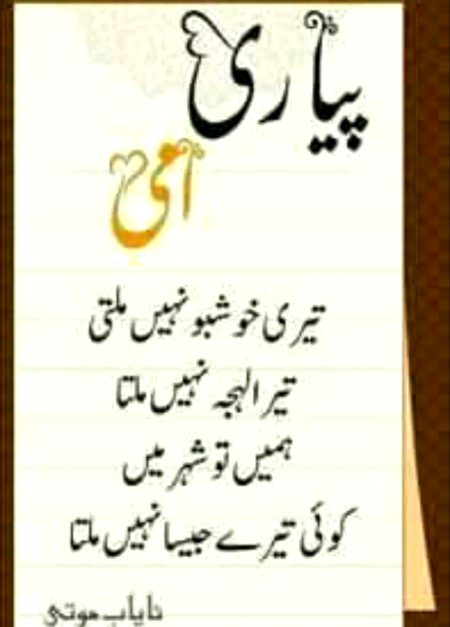 پیاری
امی
تیری خوشبو نہیں ملتی
تیرا لہجہ نہیں ملتا
ہمیں تو شہر میں
کوئی تیرے جیسا نہیں ملتا
نایاب موتی